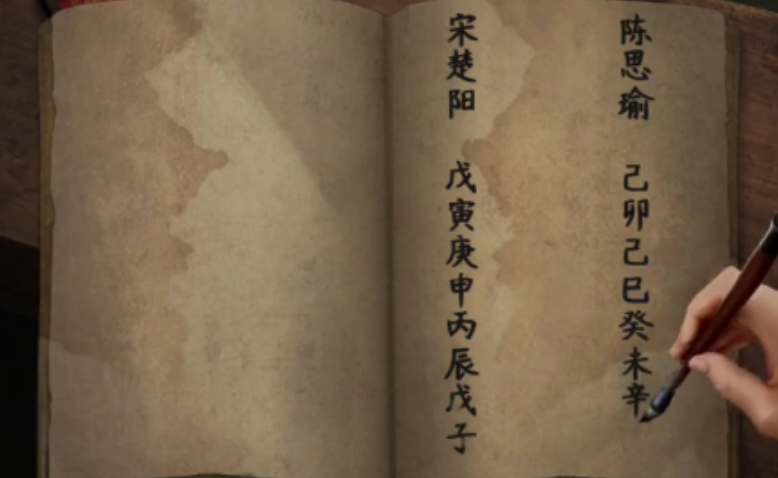 陈思瑜 己卯己巳癸未辛
宋楚阳 戊寅庚申丙辰戊子